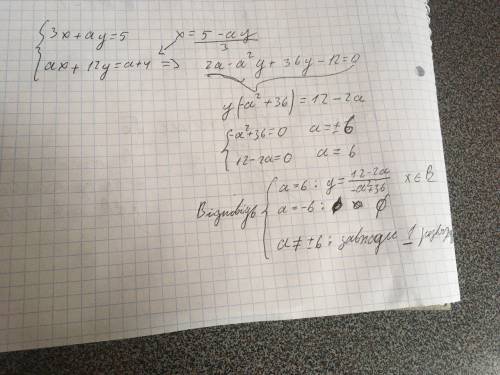 3x+ay=5 x=5-ay/3
ax+12y=a+4 => 2a-a²y+36y-12=0
y(-a²+36)=12-2a
-a²+36=0 a=±6
12-2a=0 a=6
Відповідь
a=6: y=12-2a/-a²+36 x∈R
a=-6: ∅
a≠±6: завжди 1